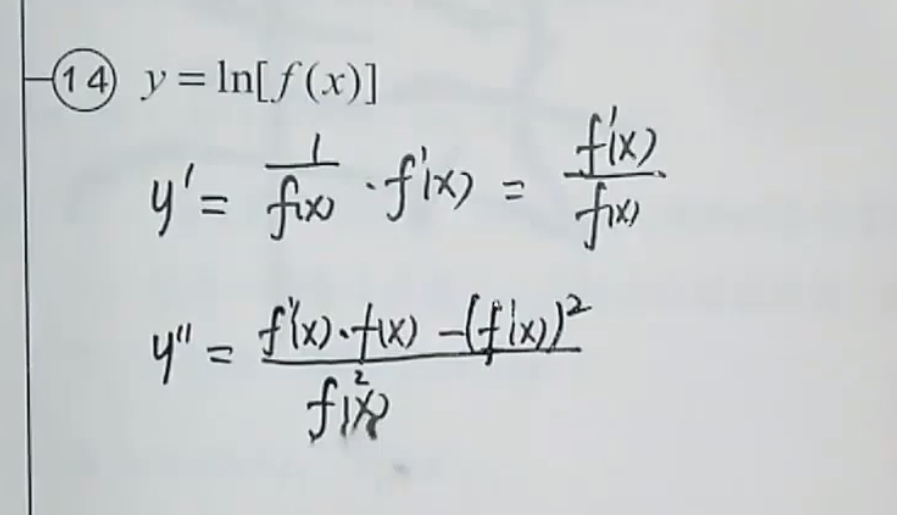 ⑭ y = ln[f(x)]
y' = 1/f(x) · f'(x) = f'(x)/f(x)
y'' = f''(x)·f(x) - (f'(x))²/f²(x)